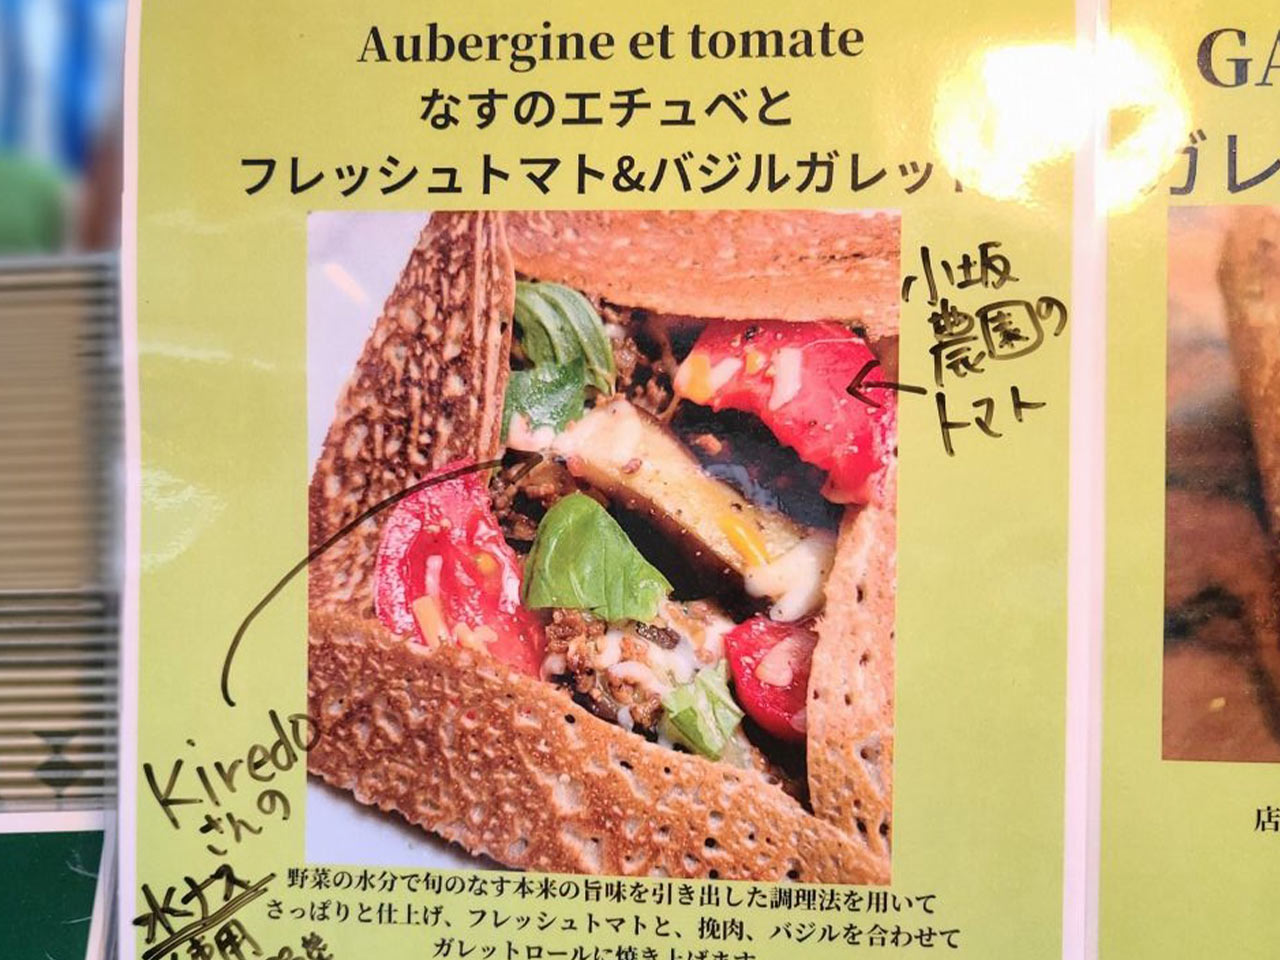 Aubergine et tomate
なすのエチュベと
フレッシュトマト&バジルガレット
小坂
農園の
トマト
Kiredo
さんの
水ナス
使用
野菜の水分で旬のなす本来の旨味を引き出した調理法を用いて
さっぱりと仕上げ、フレッシュトマトと、挽肉、バジルを合わせて
ガレットロールに焼き上げます
GA
ガレ
店